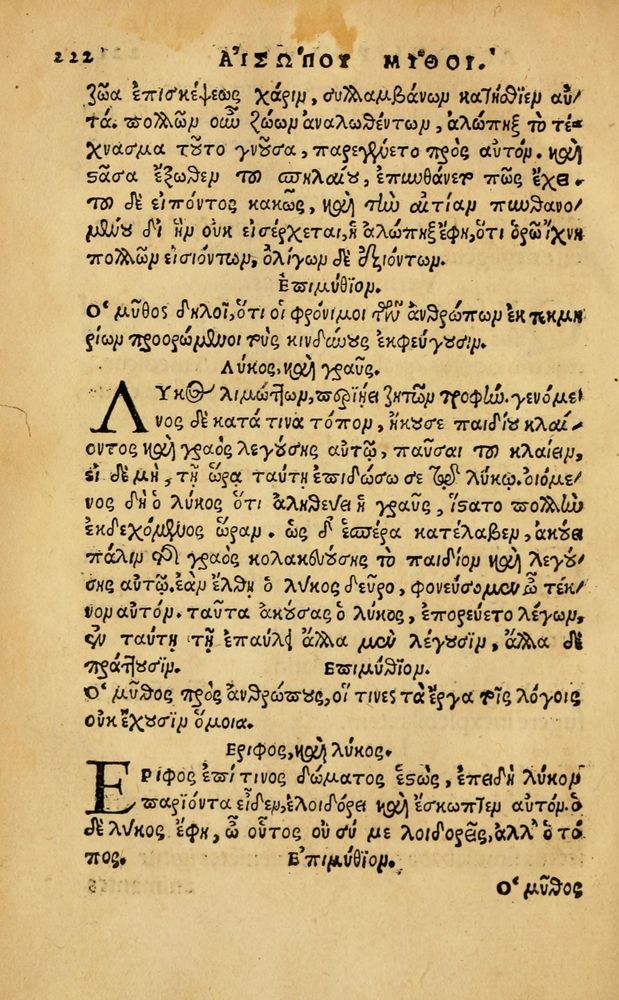 222 ΑἸΣΩΠΟΥ ΜΥΘΟΙ.
ζῶα ἐπισκέψεως χάριν, συλλαμβάνων κατήσθιεν αὐ-
τά. πολλῶν οὖν ζώων ἀναλωθέντων, ἀλώπηξ τὸ τέ-
χνασμα τοῦτο γνοῦσα, παρεγένετο πρὸς αὐτόν. καὶ
στᾶσα ἔξωθεν τοῦ σπηλαίου, ἐπυνθάνετο πῶς ἔχει.
τοῦ δὲ εἰπόντος κακῶς, καὶ τὴν αἰτίαν πυνθανο-
μένου δι' ἣν οὐκ εἰσέρχεται, ἡ ἀλώπηξ ἔφη, ὅτι ὁρῶ ἴχνη
πολλῶν εἰσιόντων, ὀλίγων δὲ ἐξιόντων.
Ἐπιμύθιον.
Ὁ μῦθος δηλοῖ, ὅτι οἱ φρόνιμοι τῶν ἀνθρώπων ἐκ τεκμη-
ρίων προορώμενοι τοὺς κινδύνους ἐκφεύγουσιν.
Λύκος, καὶ γραῦς.
ΛΥκος λιμώττων, περιῄει ζητῶν τροφήν. γενόμε-
νος δὲ κατά τινα τόπον, ἤκουσε παιδίου κλαί-
οντος καὶ γραὸς λεγούσης αὐτῷ, παῦσαι τοῦ κλαίειν,
εἰ δὲ μὴ, τῇ ὥρᾳ ταύτῃ ἐπιδώσω σε τῷ λύκῳ. οἰόμε-
νος δὴ ὁ λύκος ὅτι ἀληθεύει ἡ γραῦς, ἵστατο πολλὴν
ἐκδεχόμενος ὥραν. ὡς δ' ἑσπέρα κατέλαβεν, ἀκούει
πάλιν τῆς γραὸς κολακευούσης τὸ παιδίον καὶ λεγού-
σης αὐτῷ. ἐὰν ἔλθῃ ὁ λύκος δεῦρο, φονεύσομεν ὦ τέκ-
νον αὐτόν. ταῦτα ἀκούσας ὁ λύκος, ἐπορεύετο λέγων,
ἐν ταύτῃ τῇ ἐπαύλει ἄλλα μὲν λέγουσιν, ἄλλα δὲ
πράττουσιν. Ἐπιμύθιον.
Ὁ μῦθος πρὸς ἀνθρώπους, οἵ τινες τὰ ἔργα τοῖς λόγοις
οὐκ ἔχουσιν ὅμοια.
Ἔριφος, καὶ λύκος.
ἘΡιφος ἐπί τινος δώματος ἑστὼς, ἐπειδὴ λύκον
παριόντα εἶδεν, ἐλοιδόρει καὶ ἔσκωπτεν αὐτόν. ὁ
δὲ λύκος ἔφη, ὦ οὗτος οὐ σύ με λοιδορεῖς, ἀλλ' ὁ τό-
πος. Ἐπιμύθιον.
Ὁ μῦθος